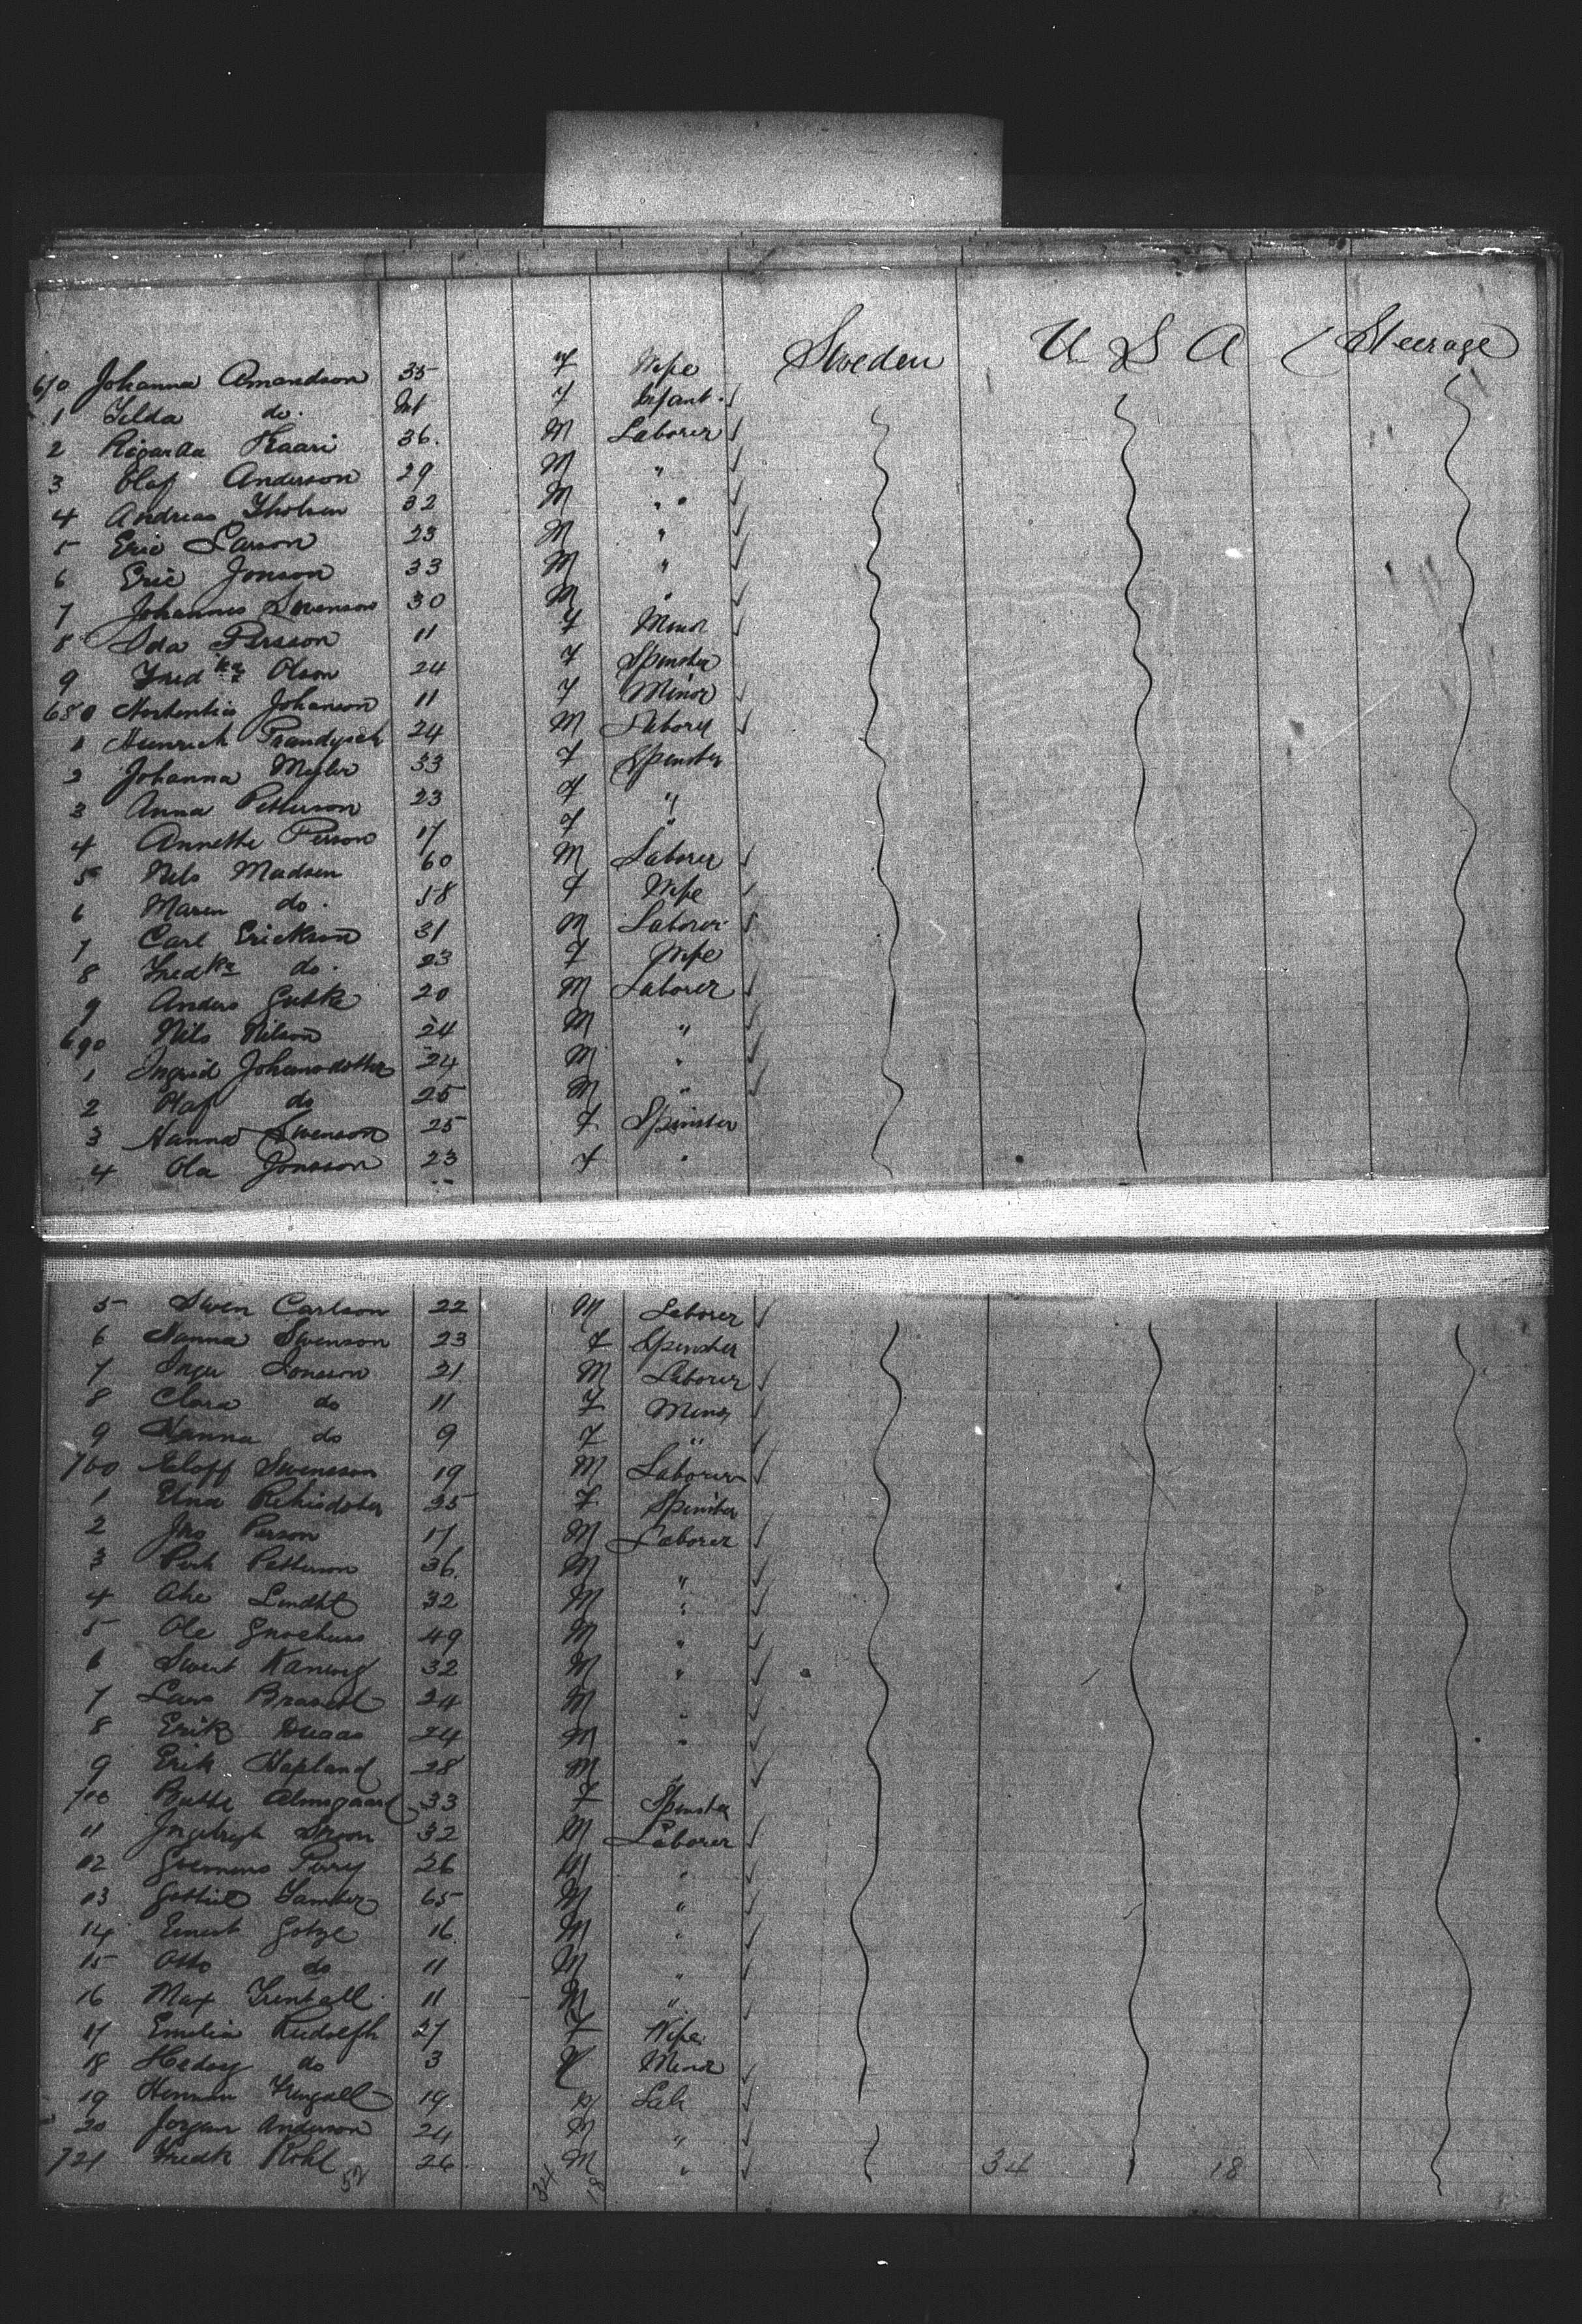 Sweden U S A Steerage
670 Johanna Amandson 35 F Wife
1 Tilda do. Inf F Infant
2 36. M Laborer
3 Olaf Anderson 29 M "
4 Andreas 32 M "
5 Eric Larson 23 M "
6 Eric Jonson 33 M "
7 Johannes Swenson 30 M "
8 Ida Persson 11 F Minor
9 Fredka Olson 24 F Spinster
680 Hortentia Johanson 11 F Minor
1 Heinrich 24 M Laborer
2 Johanna 33 F Spinster
3 Anna Petterson 23 F "
4 Annette Person 17 F "
5 Nels Madsen 60 M Laborer
6 Maren do. 58 F Wife
7 Carl Erickson 31 M Laborer
8 Fredka do. 23 F Wife
9 Anders 20 M Laborer
690 Nils Nilson 24 M "
1 Ingrid Johansdotter 24 M "
2 Olaf do 25 M "
3 Hanna Swenson 25 F Spinster
4 Ola Jonsson 23 F "
5 Swen Carlson 22 M Laborer
6 Hanna Swenson 23 F Spinster
7 Inger Jonsson 21 M Laborer
8 Clara do 11 F Minor
9 Hanna do 9 F "
700 Eloff Swensson 19 M Laborer
1 Elna 35 F Spinster
2 Jno Person 17 M Laborer
3 Petterson 36. M "
4 Ake 32 M "
5 Ole 49 M "
6 32 M "
7 Lars 24 M "
8 Erik 24 M "
9 Erik Hapland 28 M "
710 Almsgaard 33 F Spinster
11 32 M Laborer
12 26 M "
13 65 M "
14 Ernest Gotze 16 M "
15 Otto do 11 M "
16 Max 11 M "
17 Emilia Rudolph 27 F Wife
18 Hedwig do 3 Minor
19 Herman 19 M Lab
20 Jorgan Anderson 24 M "
721 Fredk Kohl 26. M "
52 34 18 34 18